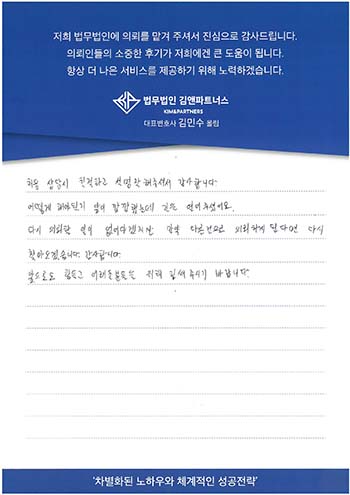 저희 법무법인에 의뢰를 맡겨 주셔서 진심으로 감사드립니다.
의뢰인들의 소중한 후기가 저희에겐 큰 도움이 됩니다.
항상 더 나은 서비스를 제공하기 위해 노력하겠습니다.
법무법인 김앤파트너스
KIM&PARTNERS
대표변호사 김민수 올림
처음 상담시 친절하고 설명 잘해주셔서 감사합니다.
어떻게 해야될지 앞이 깜깜했는데 길을 열어주셨어요.
다시 의뢰할 일이 없어야겠지만, 만약 다른건으로 의뢰하게 된다면 다시
찾아오겠습니다. 감사합니다.
앞으로도 힘들고 어려운분들을 위해 힘써주시기 바랍니다.
'차별화된 노하우와 체계적인 성공전략'